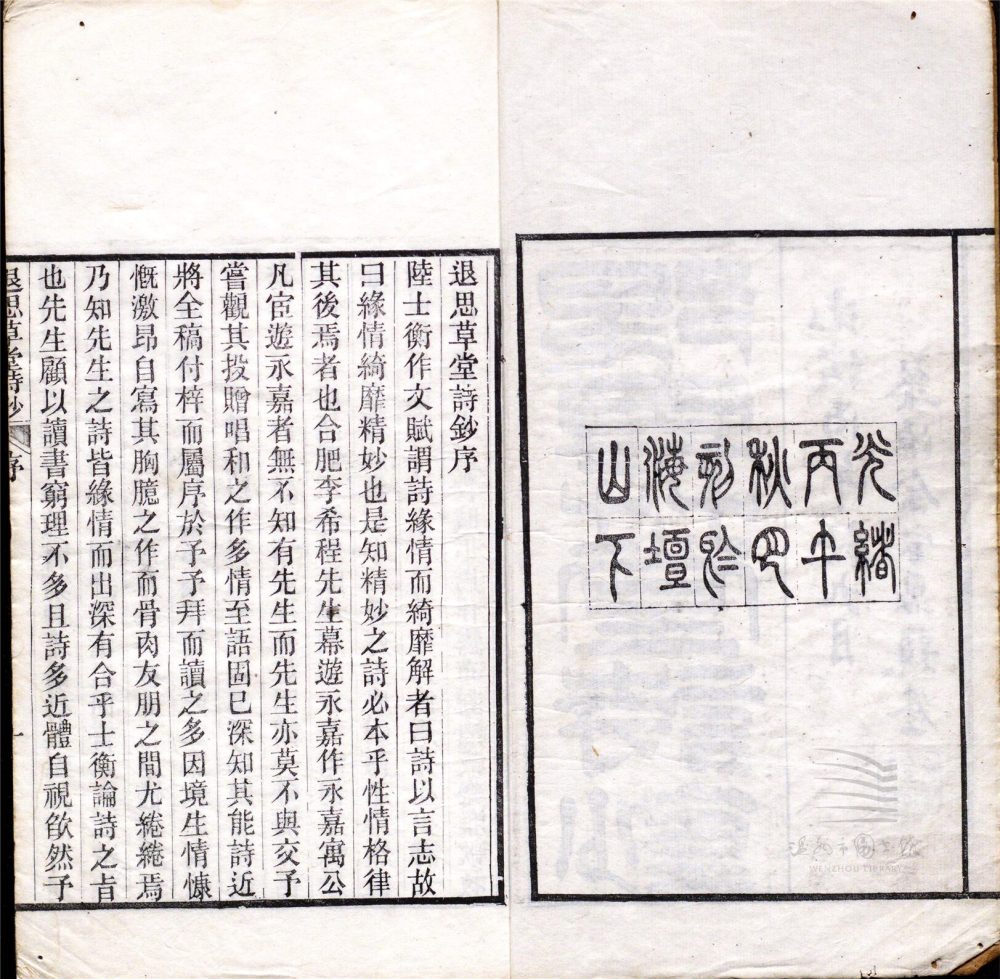 光緒
丙午
秋
刻於
海壇
山下
退思草堂詩鈔序
陸士衡作文賦謂詩緣情而綺靡解者曰詩以言志故
曰緣情綺靡精妙也是知精妙之詩必本乎性情格律
其後焉者也合肥李希程先生幕遊永嘉作永嘉寓公
凡宦遊永嘉者無不知有先生而先生亦莫不與交予
嘗觀其投贈唱和之作多情至語固已深知其能詩近
將全稿付梓而屬序於予予拜而讀之多因境生情慷
慨激昂自寫其胸臆之作而骨肉友朋之間尤綣綣焉
乃知先生之詩皆緣情而出深有合乎士衡論詩之旨
也先生顧以讀書窮理不多且詩多近體自視欿然予
退思草堂詩鈔 序 一
温州市图书馆
WENZHOU LIBRARY